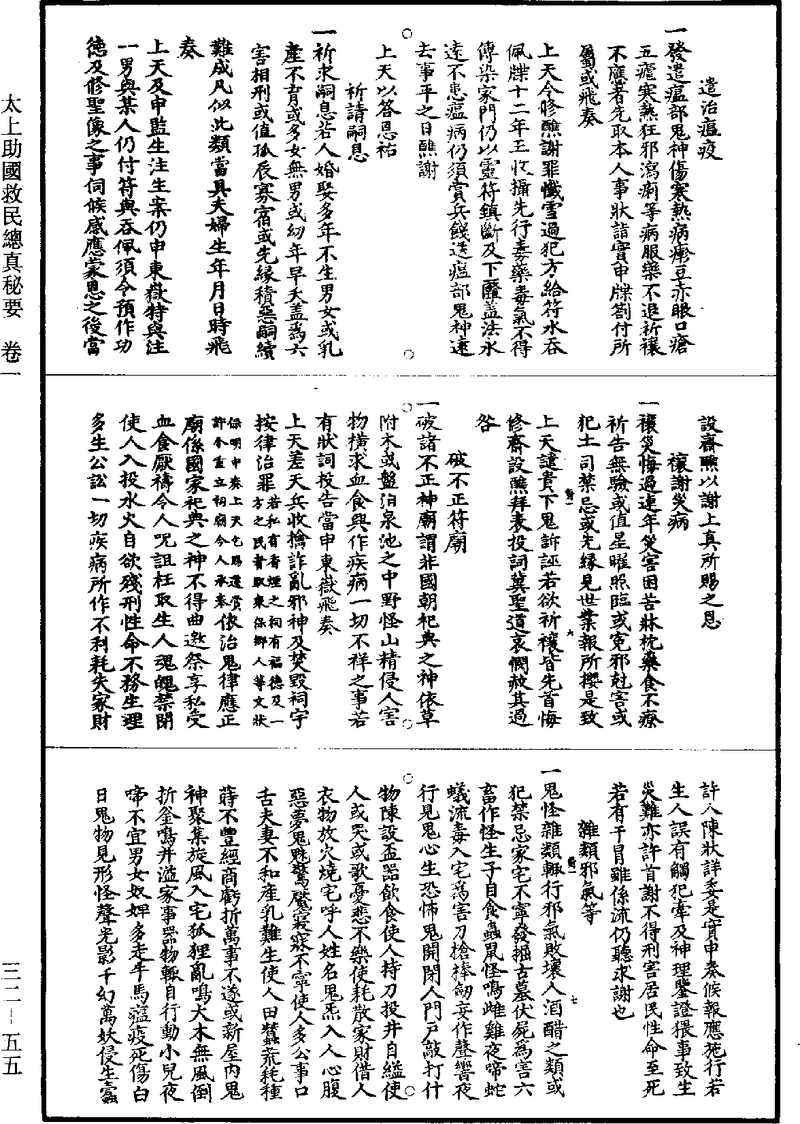 太上助國救民總真秘要　卷一
三二—五五
遣治瘟疫
一發遣瘟部鬼神傷寒熱病瘮豆赤眼口瘡
五瘧寒熱狂邪瀉痢等病服藥不退祈禳
不應者先取本人事狀詣實申牒劄付所
屬或飛奏
上天令修醮謝罪懺雪過犯方給符水吞
佩牒十二年王收攝先行毒藥毒氣不得
傳染家門仍以靈符鎮斷及下魘盖法水
遠不患瘟病仍須賞兵餞送瘟部鬼神速
去事平之日醮謝
上天以答恩祐
祈請嗣息
一祈求嗣息若人婚娶多年不生男女或乳
產不育或多女無男或幼年早夭盖為六
害相刑或值孤辰寡宿或先緣積惡嗣續
難成凡似此類當具夫婦生年月日時飛
奏
上天及申監生注生案仍申東嶽特與注
一男與某人仍付符與吞佩須令預作功
德及修聖像之事伺候感應蒙恩之後當
設齋醮以謝上真所賜之恩
禳謝災病
一禳災悔過連年災害困苦牀枕藥食不療
祈告無驗或值星曜照臨或寃邪尅害或
犯土司禁忌或先緣見世業報所攖是致
上天譴責下鬼訴誣若欲祈禳皆先首悔
修齋設醮拜表投詞冀聖道哀憫赦其過
咎
破不正符廟
一破諸不正神廟謂非國朝祀典之神依草
附木或盤泊泉池之中野怪山精侵人害
物橫求血食興作疾病一切不祥之事若
有狀詞投告當申東嶽飛奏
上天差天兵收擒詐亂邪神及焚毀祠宇
按律治罪若私有香煙之祠有福德及一方之民者取索保鄉人等文狀
保明申奏上天乞賜還賞許令重立祠廟令人承奉依治鬼律應正
廟係國家祀典之神不得曲邀祭享私受
血食厭禱令人呪詛枉取生人魂魄禁閉
使人入投水火自欲殘刑性命不務生理
多生公訟一切疾病所作不利耗失家財
許人陳狀詳委是實申奏候報應施行若
生人誤有觸犯牽及神理鑒證猥事致生
災難亦許首謝不得刑害居民性命至死
若有干冒雖係流仍聽求謝也
雜類邪氣等
一鬼怪雜類輙行邪氣敗壞人酒醋之類或
犯禁忌家宅不寧發掘古墓伏屍為害六
畜作怪生子自食蟲鼠怪鳴雌雞夜啼蛇
蟻流毒入宅為害刀槍棒劒妄作聲響夜
行見鬼心生恐怖鬼開閉人門戶敲打什
物陳設盃器飲食使人持刀投井自縊使
人或哭或歌憂悲不樂使耗散家財借人
衣物放火燒宅呼人姓名鬼炁入人心腹
惡夢鬼魅驚魘寢寐不寧使人多公事口
舌夫妻不和產乳難生使人田蠶荒耗種
蒔不豐經商虧折萬事不遂或新屋內鬼
神聚集旋風入宅狐狸亂鳴大木無風倒
折釜鳴井溢家事器物輙自行動小兒夜
啼不宜男女奴婢多走牛馬瘟疫死傷白
日鬼物見形怪聲光影千幻萬妖侵生蠹